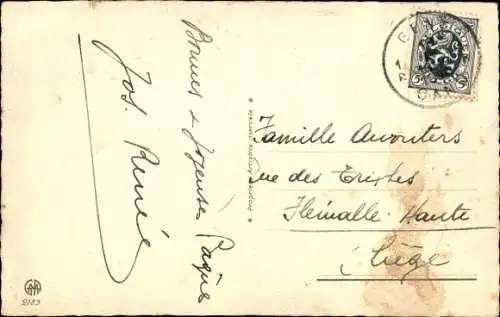 Bonnes & Joyeuses Pâques
Jos. René
Famille Awouters
rue des Tristes
Flémalle-Haute
Liège
BELGIQUE
5
2183